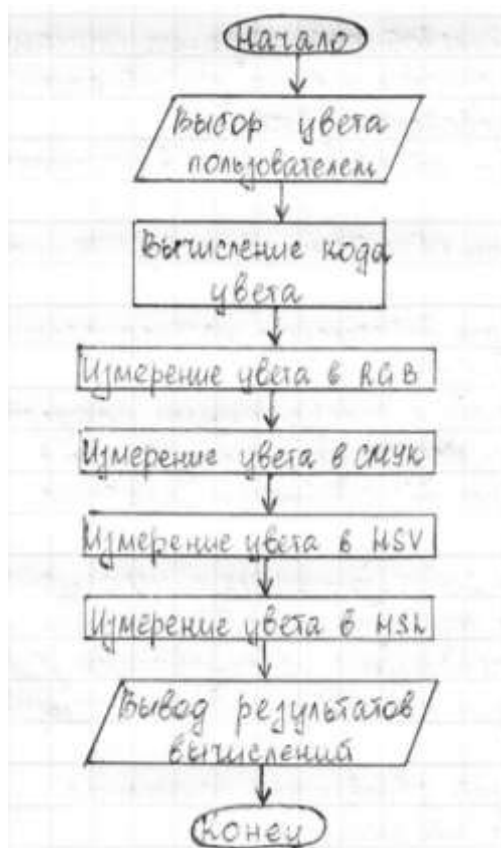 Начало
Выбор цвета
пользователем
Вычисление кода
цвета
Измерение цвета в RGB
Измерение цвета в CMYK
Измерение цвета в HSV
Измерение цвета в HSL
Вывод результатов
вычислений
Конец